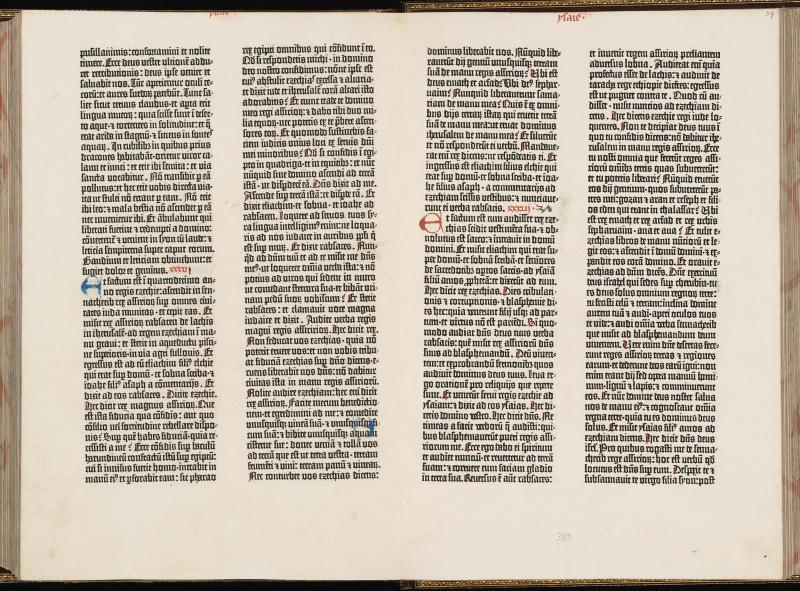 ysaie
pusillanimis: confortamini et nolite
timere. Ecce deus vester ultionē addu-
cet retributionis: deus ipse veniet et
saluabit nos. Tūc aperientur oculi ce-
corū: et aures surdorū patebūt. Tunc sa-
liet sicut ceruus claudus: et apta erit
lingua mutorū: quia scisse sunt ī deser-
to aque: et torrentes in solitudine: et q̄
erat arida in stagnū: et sitiens in fontes
aquarū. In cubilibus in quibus prius
dracones habitabāt: orietur viror ca-
lami et iunci: et erit ibi semita: et via
sancta vocabitur. Nō transibit p eā
pollutus: et hec erit vobis directa via:
ita ut stulti nō errent p eam. Nō erit
ibi leo: et mala bestia nō ascendet p eā
nec inuenietur ibi. Et ābulabunt qui
liberati fuerint: et redempti a domino:
cōuertentur et venient in syon cū laude: et
leticia sempiterna super caput eorum.
Gaudium et leticiam obtinebunt: et
fugiet dolor et gemitus. xxxvi
Et factum est ī quartodecimo an-
no regis ezechie: ascendit sen-
nacherib rex assyriorū sup omnes ciui-
tates iuda munitas: et cepit eas. Et
misit rex assyriorū rabsacen de lachis
in iherusalē: ad regem ezechiam ī ma-
nu graui: et stetit in aqueductu pisci-
ne superioris: in via agri fullonis. Et
egressus est ad eū eliachim filius elchie
qui erat sup domū: et sobna scriba: et
ioahe filius asaph a cōmentarijs. Et
dixit ad eos rabsaces. Dicite ezechie.
Hec dicit rex magnus assyriorū. Que
est ista fiducia qua cōfidis: aut quo
cōsilio uel fortitudine rebellare dispo-
nis? Sup quē habes fiduciā: quia re-
cessisti a me? Ecce cōfidis sup baculū
harundineū confractū istū sup egiptū:
cui si innisus fuerit homo: intrabit in
manū eius et pforabit eam: sic pharao
rex egipti omnibus qui cōfidunt ī eo.
Qd si responderis michi: in domino
deo nostro confidimus: nōne ipse est
cuius abstulit ezechias excelsa et altaria:
et dixit iude et iherusalē corā altari isto
adorabitis? Et nunc trade te domino
meo regi assyriorū: et dabo tibi duo mi-
lia equorū: nec poteris ex te pbere ascen-
sores eorū. Et quomodo sustinebis fa-
ciem iudicis unius loci ex seruis dñi
mei minoribus? Qd si confidis ī egi-
pto in quadriga et in equitibus: et nūc
nūquid sine domino ascendi ad terrā
istā: ut disperderē eā? Dñs dixit ad me.
Ascende sup terrā istā: et disperde eā. Et
dixit eliachim et sobna et ioahe ad
rabsacen. Loquere ad seruos tuos sy-
ra lingua: intelligimus enim: ne loqua-
ris ad nos iudaice in auribus ppli q
est sup murū. Et dixit rabsaces. Nun-
quid ad dñm tuū et ad te misit me dñs
meus ut loquerer omnia verba ista: et nō
potius ad viros qui sedent in muro
ut comedant stercora sua: et bibāt uri-
nam pedū suorū vobiscum? Et stetit
rabsaces: et clamauit voce magna
iudaice et dixit. Audite verba regis
magni regis assyriorū. Hec dicit rex.
Non seducat vos ezechias: quia nō
poterit eruere vos: et non vobis tribu-
at fiduciā ezechias sup dño dicens: e-
ruens liberabit nos dñs: nō dabitur
ciuitas ista in manu regis assyriorū.
Nolite audire ezechiam: hec eni dicit
rex assyriorū. Facite mecum benedictio-
nem et egredimini ad me: et comedite
unusquisq vineā suā: et unusquisq fi-
cum suā: et bibite unusquisq aquam
cisterne sue: donec veniā et tollā vos
ad terrā que est ut terra vestra: terram
frumēti et vini: terram panū et vinearū.
Nec conturbet vos ezechias dicens:
ysaie
59
dominus liberabit nos. Nūquid libe-
rauerūt dij gentiū unusquisq terram
suā de manu regis assyriorū? Ubi est
deus emath et arfad? Ubi deus sephar-
uaim? Nunquid liberauerunt sama-
riam de manu mea? Quis ē ex omni-
bus dijs terrarū istarū qui eruerit terrā
suā de manu mea: ut eruat dominus
iherusalem de manu mea? Et siluerūt
et nō responderūt ei verbū. Mandaue-
rat enī rex dicens: ne respondeatis ei. Et
ingressus est eliachim filius elchie qui
erat sup domū: et sobna scriba: et ioa-
he filius asaph a commentarijs ad
ezechiam scissis vestibus: et nunciaue-
runt ei verba rabsacis. xxxvij
Et factum est cum audisset rex eze-
chias scidit vestimēta sua: et ob-
uolutus est sacco: et intrauit in domū
domini. Et misit eliachim qui erat su-
per domū: et sobnā scribā: et seniores
de sacerdotib opertos saccis: ad ysaiā
filiū amos pphetā: et dixerūt ad eum.
Hec dicit ezechias. Dies tribulati-
onis et correptionis et blasphemie di-
es hec: quia venerunt filij usq ad par-
tum: et virtus nō est pariēdi. Si quo-
modo audiat dñs deus tuus verba
rabsacis: quē misit rex assyriorū dñs
suus ad blasphemandū deū viuen-
tem: et exprobrandū sermonibus quos
audiuit dominus deus tuus. Leua er-
go orationē pro reliquijs que reperte
sunt. Et venerūt serui regis ezechie ad
ysaiam: et dixit ad eos ysaias. Hec di-
cetis domino vestro. Hec dicit dñs. Ne
timeas a facie verborū q̄ audisti: qui-
bus blasphemauerūt pueri regis assy-
riorum me. Ecce ego dabo ei spiritum
et audiet nunciū: et reuertetur ad terrā
suam: et corruere eum faciam gladio
in terra sua. Reuersus ē aūt rabsaces:
et inuenit regem assyriorū preliantem
aduersus lobna. Audierat enī quia
profectus esset de lachis: et audiuit de
tarach rege ethiopie dicentes: egressus
est ut pugnet contra te. Quod cū au-
disset: misit nuncios ad ezechiam di-
cens. Hec dicetis ezechie regi iude lo-
quentes. Non te decipiat deus tuus ī
quo tu confidis dicens: nō dabitur ihe-
rusalem in manu regis assyriorū. Ecce
tu nosti omnia que fecerūt reges assy-
riorū oībus terris quas subuerterūt:
et tu poteris liberari? Nūquid eruerūt
eos dij gentium: quos subuerterūt pa-
tres mei: gozan et aran et reseph et fili-
os eden qui erant in thalassar? Ubi
est rex emath et rex arfad et rex urbis
sepharuaim: ana et aua? Et tulit e-
zechias libros de manu nūciorū et le-
git eos: et ascendit ī domū domini: et ex-
pandit eos corā domino. Et orauit e-
zechias ad dñm dicēs. Dñe exercituū
deus israhel qui sedes sup cherubin: tu
es deus solus omnium regnorū terre:
tu fecisti celū et terram: inclina domine
aurem tuā et audi: aperi oculos tuos
et vide: et audi omīa verba sennacherib
que misit ad blasphemandum deum
viuentem. Uere enim dñe desertas fece-
runt reges assyriorū terras et regiones
earum: et dederunt deos earū igni: non
enim erant dij sed opera manuū homi-
num: lignū et lapis: et comminuerunt
eos. Et nūc domine deus noster salua
nos de manu eius: et cognoscant omīa
regna terre: quia tu es dominus deus
solus. Et misit ysaias filius amos ad
ezechiam dicens. Hec dicit dñs deus
isrl. Pro quibus rogasti me de senna-
cherib rege assyriorū: hoc est verbū qd
locutus est dñs sup eum. Despexit te et
subsannauit te virgo filia syon: post
383